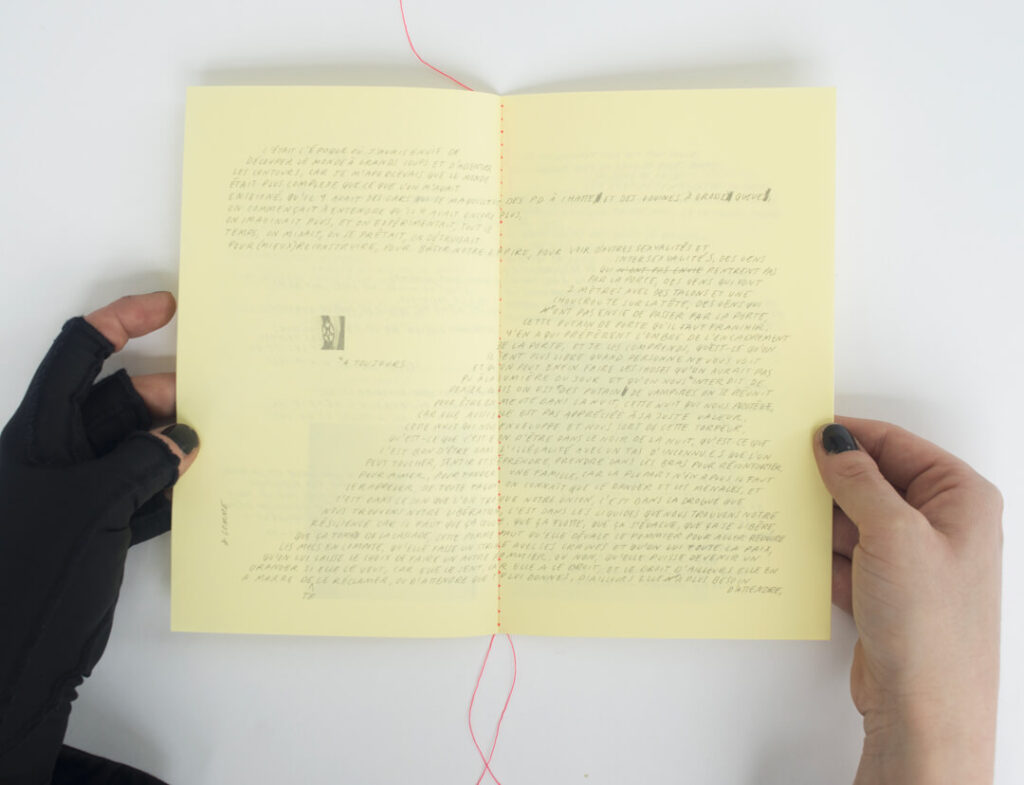 C'ÉTAIT L'ÉPOQUE OÙ J'AVAIS ENVIE DE
DÉCOUPER LE MONDE À GRANDS COUPS ET D'AGRANDIR
LES CONTOURS, CAR JE M'APERCEVAIS QUE LE MONDE
ÉTAIT PLUS COMPLEXE QUE CE QUE L'ON M'AVAIT
ENSEIGNÉ, QU'IL Y AVAIT DES GARS QUI SE MAQUILLENT, DES PD À CHATTE ET DES GOUINES À GROSSE QUEUE,
ON COMMENÇAIT À ENTENDRE QU'IL Y AVAIT ENCORE PLUS,
ON IMAGINAIT PLUS, ET ON EXPÉRIMENTAIT, TOUT LE
TEMPS, ON MIMAIT, ON SE PRÊTAIT, ON DÉTRUISAIT
POUR (MIEUX) RECONSTRUIRE, POUR BÂTIR NOTRE EMPIRE, POUR VOIR D'AUTRES SEXUALITÉS ET
INTERSEXUALITÉS, DES GENS
QUI N'ONT PAS ENVIE RENTRENT PAS
PAR LA PORTE, DES GENS QUI FONT
2 MÈTRES AVEC DES TALONS ET UNE
CHOUCROUTE SUR LA TÊTE, DES GENS QUI
N'ONT PAS ENVIE DE PASSER PAR LA PORTE,
CETTE PUTAIN DE PORTE QU'IL FAUT FRANCHIR,
Y'EN A QUI PRÉFÈRENT L'OMBRE DE L'ENCADREMENT
DE LA PORTE, ET JE LES COMPRENDS, QU'EST-CE QU'ON
SENT PLUS LIBRE QUAND PERSONNE NE VOUS VOIT
ET QU'ON PEUT ENFIN FAIRE LES CHOSES QU'ON AURAIT PAS
PU À LA LUMIÈRE DU JOUR ET QU'ON NOUS INTERDIT DE
PENSER, ON EST DES PUTAIN DE VAMPIRES ON SE RÉUNIT
POUR ÊTRE EN MEUTE DANS LA NUIT, CETTE NUIT QUI NOUS PROTÈGE,
CAR ELLE AUSSI EST PAS APPRÉCIÉE À SA JUSTE VALEUR,
CETTE NUIT QUI NOUS ENVELOPPE ET NOUS SORT DE CETTE TORPEUR,
QU'EST-CE QUE C'EST BON D'ÊTRE DANS LE NOIR DE LA NUIT, QU'EST-CE QUE
C'EST BON D'ÊTRE DANS L'ILLÉGALITÉ AVEC UN TAS D'INCONNU.E.S QUE L'ON
PEUT TOUCHER, SENTIR ET SURPRENDRE PRENDRE DANS LES BRAS POUR RÉCONFORTER,
POUR AIMER, POUR FORMER UNE FAMILLE, CAR LA PLUPART N'EN A PLUS IL FAUT
SE RAPPELER, DE TOUTE FAÇON ON CONNAÎT QUE LE DANGER ET LES MENACES, ET
C'EST DANS CE LIEN QUE L'ON TROUVE NOTRE UNION, C'EST DANS LA DROGUE QUE
NOUS TROUVONS NOTRE LIBERATION, C'EST DANS LES LIQUIDES QUE NOUS TROUVONS NOTRE
RÉSILIENCE CAR IL FAUT QUE ÇA COULE, QUE ÇA FLOTTE, QUE ÇA S'ÉVACUE, QUE ÇA SE LIBÈRE,
QUE ÇA TOMBE EN CASCADE, CETTE POMME FAUT QU'ELLE DÉVALE LE POMMIER POUR ALLER
QU'ELLE FASSE ON STOCKE AVEC SES GRAINES ET QU'ON LUI FOUTE LA PAIX,
QU'ON LUI LAISSE LE CHOIX DE FAIRE UN AUTRE POMMIER, OU NON, QU'ELLE PUISSE DEVENIR UN
ORANGER SI ELLE LE VEUT, CAR ELLE LE SENT, CAR ELLE A LE DROIT, ET LE DROIT D'AILLEURS ELLE EN
A MARRE DE CE RÉCLAMER, OU D'ATTENDRE QUE LUI DONNES, D'AILLEURS ELLE N'A PLUS BESOIN
D'ATTENDRE,
TA
"À TOUJOURS"